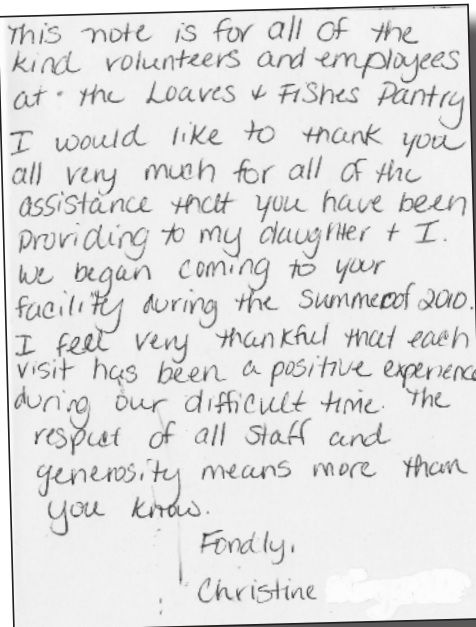 This note is for all of the
kind volunteers and employees
at the Loaves & Fishes Pantry
I would like to thank you
all very much for all of the
assistance that you have been
providing to my daughter + I.
We began coming to your
facility during the summer of 2010.
I feel very thankful that each
visit has been a positive experience
during our difficult time. The
respect of all staff and
generosity means more than
you know.
Fondly,
Christine